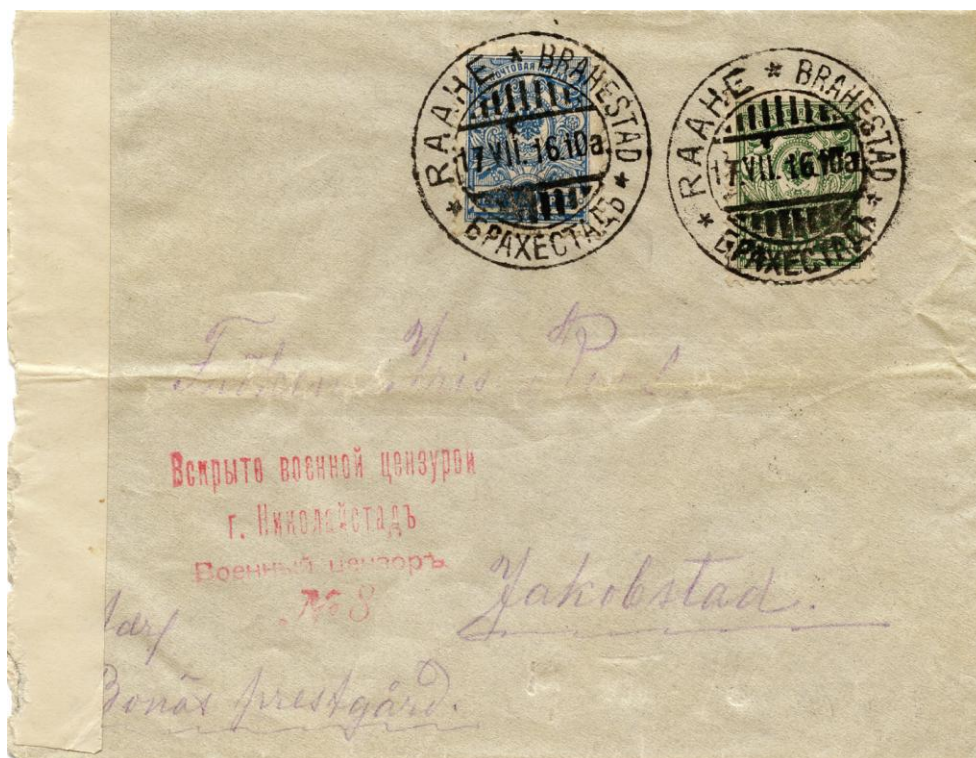 RAAHE * BRAHESTAD * БРАХЕСТАДЪ *
17.VII.16.10a
RAAHE * BRAHESTAD * БРАХЕСТАДЪ *
17.VII.16.10a
ПОЧТОВАЯ
Fröken
Вскрыто военной цензурой
г. Николайстадъ
Военный цензоръ
№ 8
Jakobstad.
Bonäs prestgård.